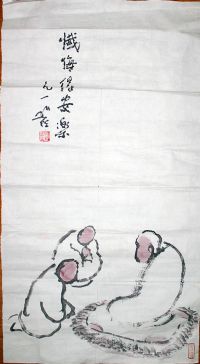 懺悔得安樂
九一